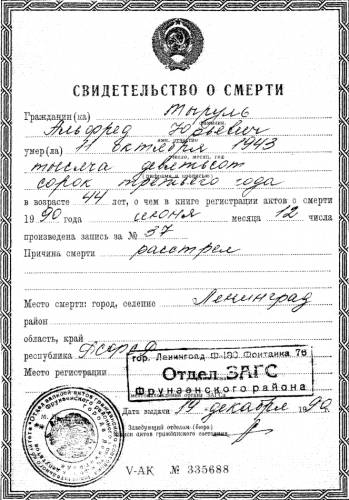 СВИДЕТЕЛЬСТВО О СМЕРТИ
Гражданин(ка) Тыруль
фамилия,
Альфред Юрьевич
имя, отчество
умер(ла) 11 октября 1943
число, месяц, год
тысяча девятьсот
(цифрами и прописью)
сорок третьего года
в возрасте 44 лет, о чем в книге регистрации актов о смерти
1990 года июня месяца 12 числа
произведена запись за № 37
Причина смерти расстрел
Место смерти: город, селение Ленинград
район
область, край
республика РСФСР
гор. Ленинград Ф-180 Фонтанка 76
Отдел ЗАГС
Фрунзенского района
Место регистрации
наименование и местонахождение органа ЗАГСа
М. П.
Дата выдачи 19 декабря 1990.
Заведующий отделом (бюро)
записи актов гражданского состояния
V-АК № 335688